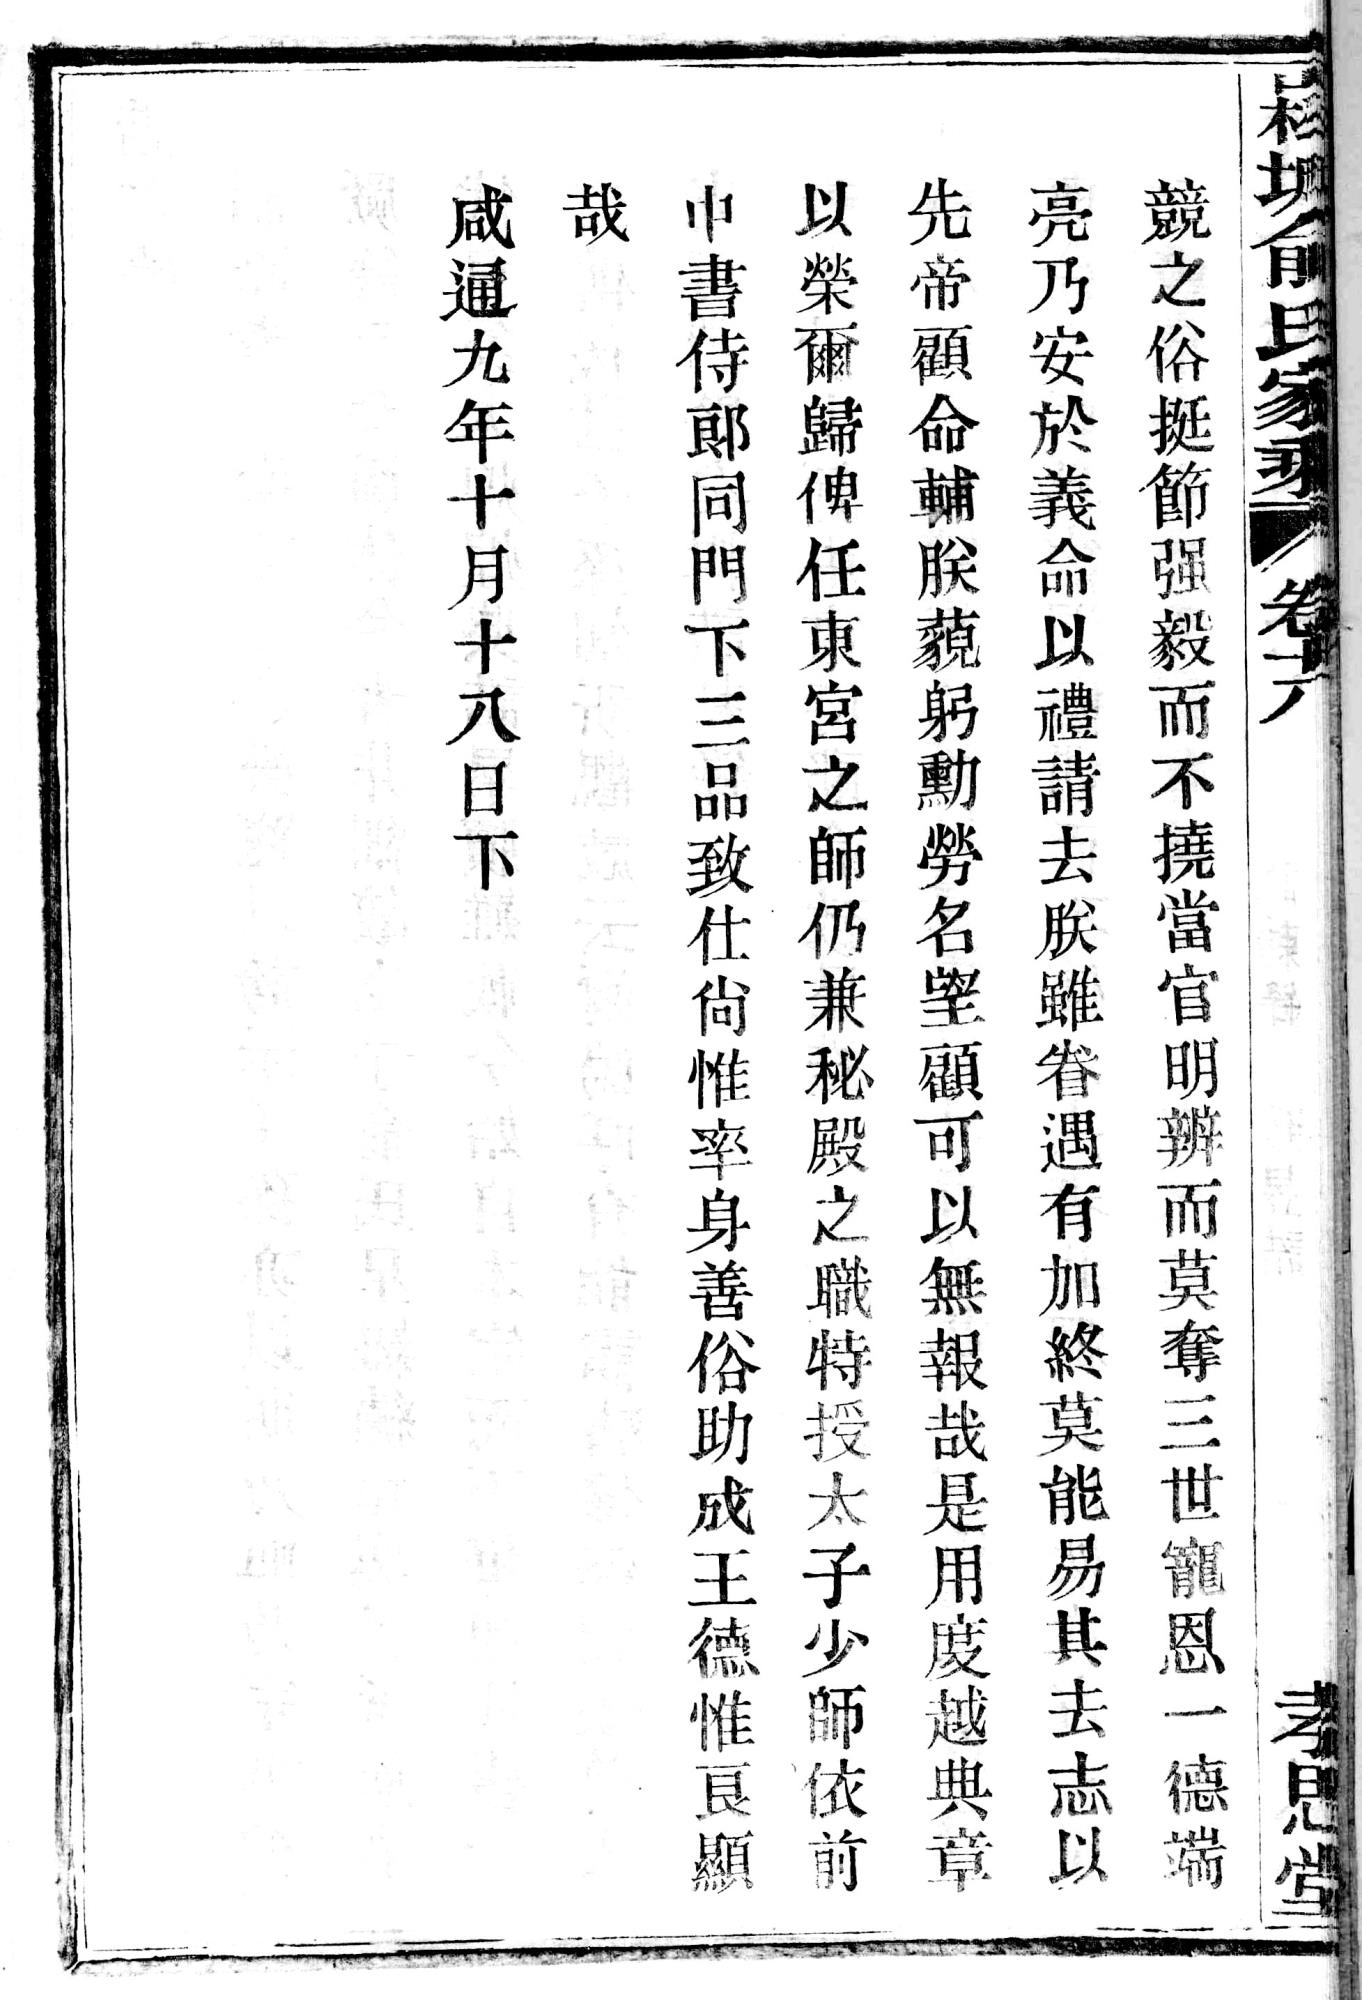 俞氏家乘 卷十八 孝思堂
競之俗挺節强毅而不撓當官明辨而莫奪三世寵恩一德端
亮乃安於義命以禮請去朕雖眷遇有加終莫能易其去志以
先帝顧命輔朕藐躬勳勞名望顧可以無報哉是用度越典章
以榮爾歸俾任東宮之師仍兼秘殿之職特授太子少師依前
中書侍郎同門下三品致仕尙惟率身善俗助成王德惟良顯
哉
咸通九年十月十八日下